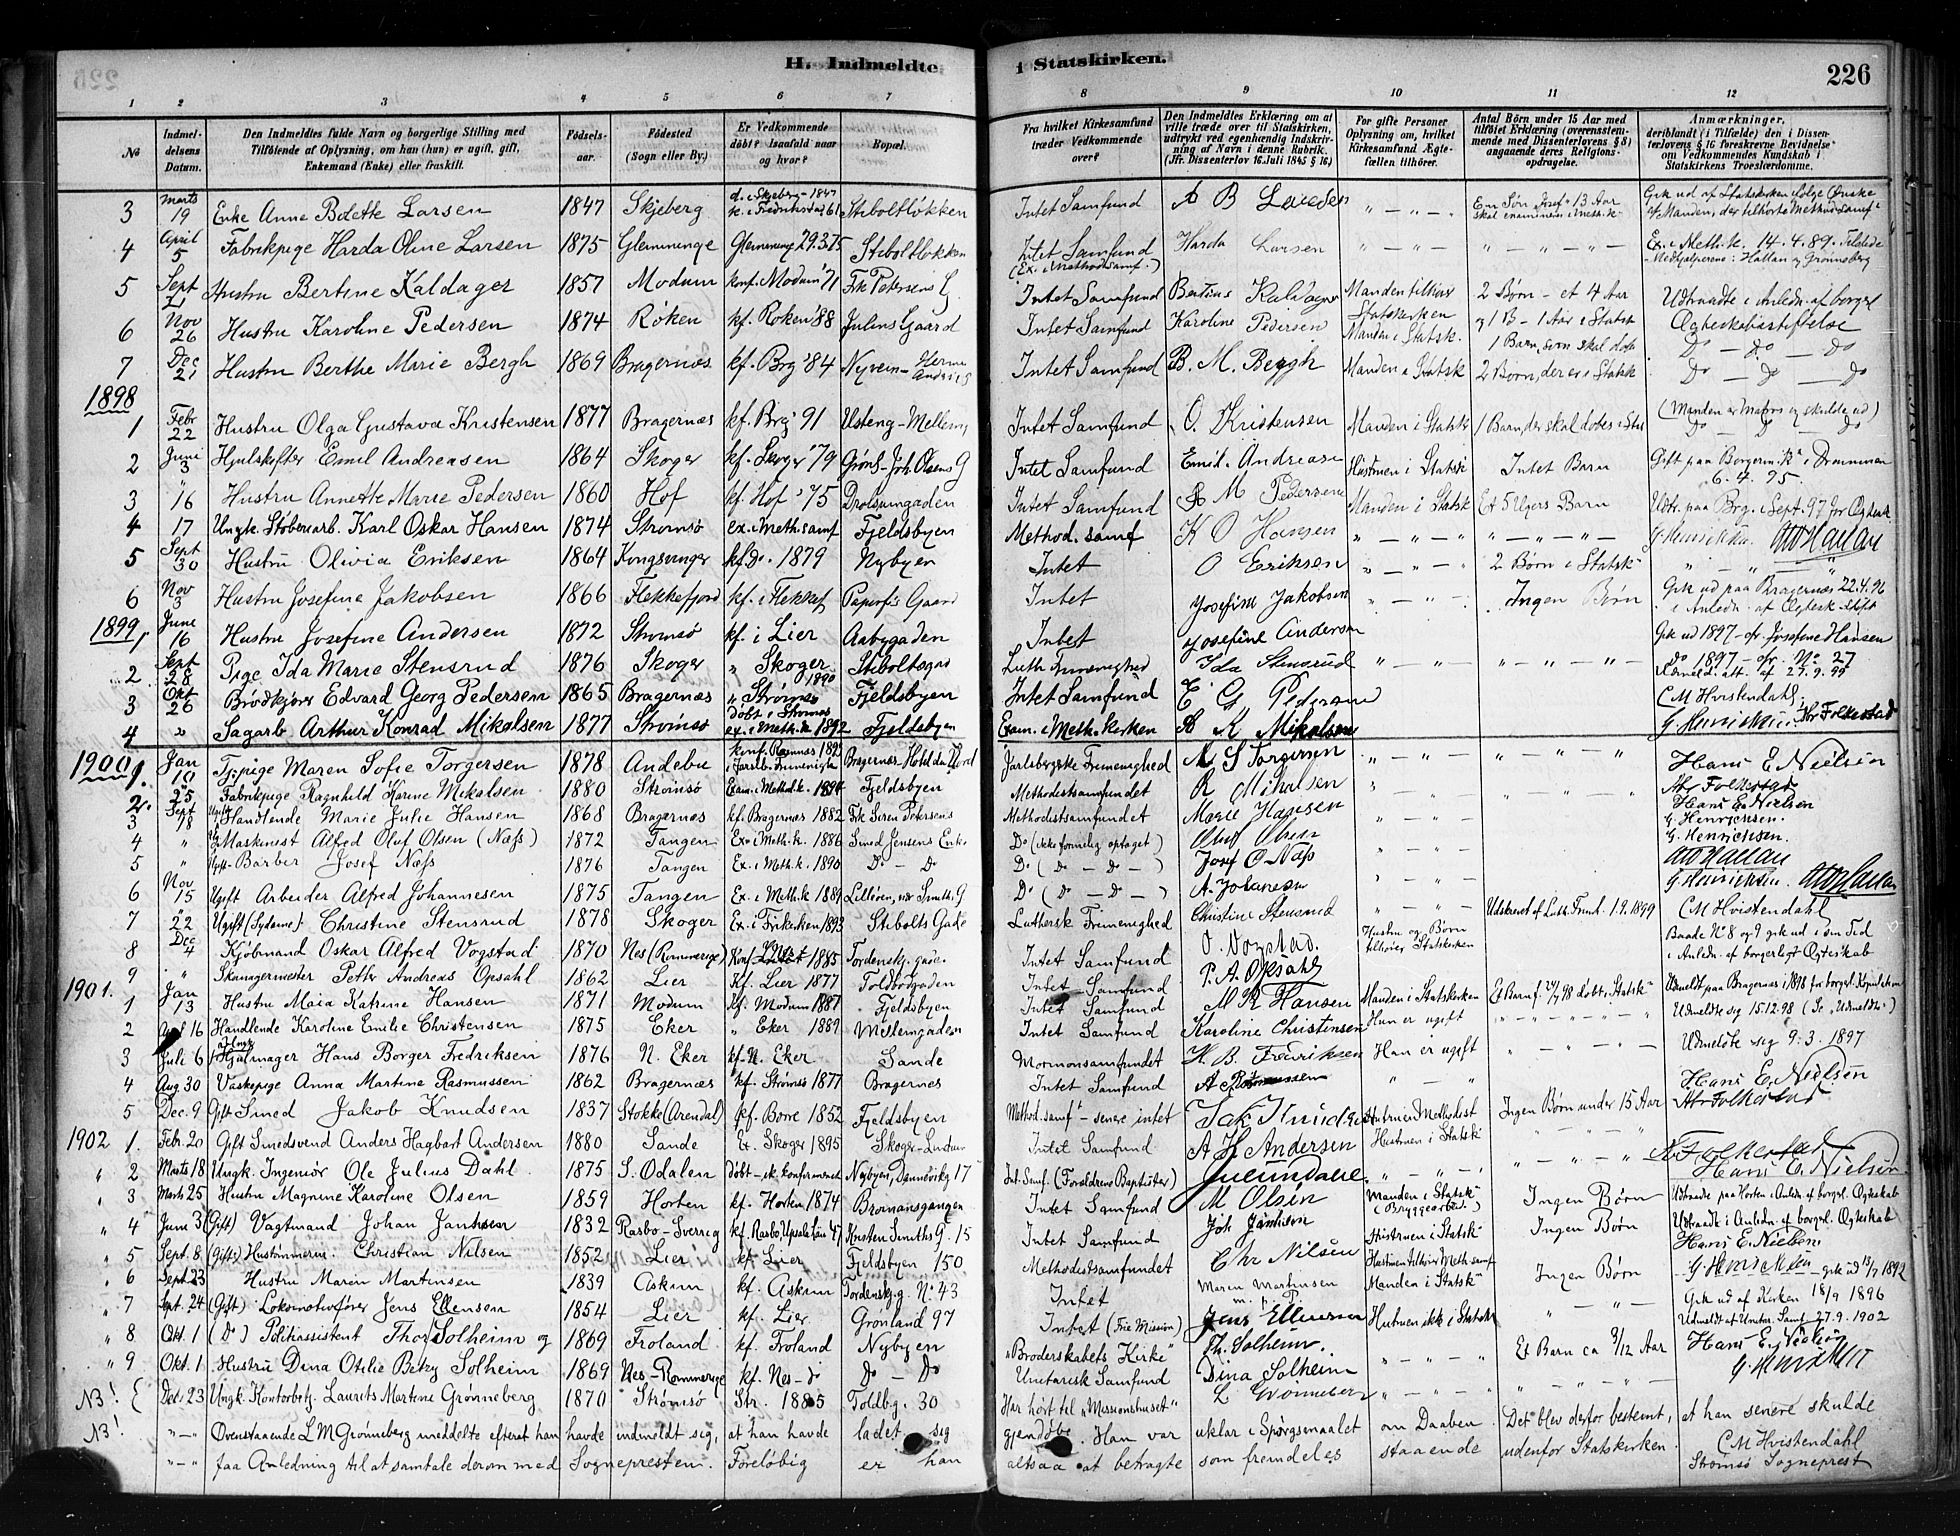 H. Indmeldte i Statskirken.
226
1 2 3 4 5 6 7 8 9 10 11 12
No
Indmeldelsens Datum.
Den Indmeldtes fulde Navn og borgerlige Stilling med Tilföiende af Oplysning, om han (hun) er ugift, gift, Enkemand (Enke) eller fraskilt.
Födselsaar.
Födested (Sogn eller By.)
Er Vedkommende döbt? Isaafald naar og hvor?
Bopæl.
Fra hvilket Kirkesamfund træder Vedkommende over?
Den Indmeldtes Erklæring om at ville træde over til Statskirken, udtrykt ved egenhændig Indskrivning af Navn i denne Rubrik. (Jfr. Dissenterlov 16. Juli 1845 § 16.)
For gifte Personer Oplysning om, hvilket Kirkesamfund Ægtefællen tilhörer.
Antal Börn under 15 Aar med tilföiet Erklæring (overensstemmende med Dissenterlovens § 8) angaaende deres Religionsopdragelse.
Anmærkninger, deriblandt (i Tilfælde) den i Dissenterlovens § 16 foreskrevne Bevidnelse om Vedkommendes Kundskab i Statskirkens Troeslærdomme.
3 Marts 19 Enke Anne Bolette Larsen 1847 Skjeberg d. i Skjeberg 1847 k. i Fredrikstad 61 Stiboltløkken Intet Samfund A B Larsen " — " — " En Søn Josef 13 Aar skal examineres i Meth.k. Gik ud af Statskirken ifølge Ønske af Manden, der tilhørte Method.samf.
4 April 5 Fabrikpige Harda Oline Larsen 1875 Glemminge Glemminge 29.3.75 Stiboltløkken Intet Samfund (Ex. i Methodistsamf.) Harda Larsen " — " — " " — " — " — " Ex. i Meth.k. 14.4.89. Tilstede Medhjelperene: Hallan og Grønneberg
5 Sept 21 Hustru Bertine Kaldager 1857 Modum konf. Modum '71 Frk Petersens G. Intet Samfund Bertine Kaldager Manden tilhører Statskirken 2 Børn - et 4 Aar og 1 B - 1 Aar i Statsk Udtraadte i Anledn. af borgerl Ægteskabsstiftelse
6 Nov 26 Hustru Karoline Pedersen 1874 Røken kf. Røken '88 Julius Gaard Intet Samfund Karoline Pedersen Manden i Statsk. 1 Barn, som skal døbes Do — Do — Do
7 Dec 21 Hustru Berthe Marie Bergh 1869 Bragernæs kf. Brg '84 Nyveien- Intet Samfund B. M. Bergh Manden i Statsk 2 Børn, der er i Statsk Do — Do — Do
1898
1 Febr 22 Hustru Olga Gustava Kristensen 1877 Bragernæs kf. Brg 91 Usteng-Mellemg Intet Samfund O. Kristensen Manden i Statsk 1 Barn, der skal døbes i Stsk Do Do Do
2 Juni 3 Hjulskifter Emil Andreasen 1864 Skoger kf. Skoger '79 Grønl-Joh. Olsens G Intet Samfund Emil Andreasen Hustruen i Statsk Intet Barn Gift paa Borgermk. i Drammen 6.4.95.
3 " 16 Hustru Annette Marie Pedersen 1860 Hof kf. Hof '75 Drolsumgaden Intet Samfund A M Pedersen Manden i Statsk Et 5 Ugers Barn Udtr. paa Brg. i Sept. 97 for Ægtesk
4 17 Ungk. Støberarb. Karl Oskar Hansen 1874 Strømsø Ex. i Meth. samf Fjeldsbyen Method. samf K O Hansen " — " — " " — " — " — " G. Henrichsen Otto Hallan
5 Sept 30 Hustru Olivia Eriksen 1864 Kongsvinger kf. Do. 1879 Nybyen Intet O Eriksen " — " — " 2 Børn i Statsk
6 Nov 3 Hustru Josefine Jakobsen 1866 Flekkefjord kf. i Flekkef Paperfis Gaard Intet Josefine Jakobsen " — " — " Ingen Børn Gik ud paa Bragernæs 22.4.96 i Anledn. af Ægtesk. Stift
1899, Juni 16 Hustru Josefine Andersen 1872 Strømsø kf. i Lier Aabygaden Intet Josefine Andersen Gik ud 1897 - ofr. Josefine Hansen
2 Sept 28 Pige Ida Marie Stensrud 1876 Skoger " Skoger 1890 Stiboltsgad Luth Frimenighed Ida Stensrud " — " — " " — " — " — " Do 1897 ofr. No. 27
3 Okt 26 Brødkjører Edvard Georg Pedersen 1865 Bragernæs " Strømsø Fjeldsbyen Intet Samfund E G Pedersen C M Hvistendahl
4 " Sagarb Arthur Konrad Mikalsen 1877 Strømsø døbt i Strømsø ex. i Meth.k 1892 Fjeldsbyen Exam. i Meth.kirken A K Mikalsen G. Henrichsen, Ab. Folkestad
1900 1. Jan 10 Tj.pige Maren Sofie Torgersen 1878 Andebu konf. Ramnæs 1893 i Jarlsb. Frimenigh Bragernæs-Hotel du Nord Jarlsbergske Frimenighed M S Torgersen Hans E. Nielsen
2. " 25 Fabrikpige Ragnhild Karine Mikalsen 1880 Strømsø Exam. i Method.k. 1894 Fjeldsbyen Methodistsamfundet R Mikalsen Ab Folkestad
3 Sept 18 Ugift Handlende Marie Julie Hansen 1868 Bragernæs kf. Bragernæs 1882 Frk Siren Petersens Methodistsamfundet Marie Hansen Hans E. Nielsen G. Henrichsen.
4 " Ug Maskinist Alfred Oluf Olsen (Næss) 1872 Tangen Ex. i Meth.k. 1886 Smed Jensens Enke Do (ikke formelig optaget) Oluf Olsen G. Henrichsen.
5 " Ugift Barber Josef Næss 1876 Tangen Ex. i Meth.k. 1890 Do — Do Do ( Do — Do — ) Josef O Næss Otto Hallan
6 Nov 15 Ugift Arbeider Alfred Johannesen 1875 Tangen Ex. i Meth.k 1889 Lilleøen, ndr. Smiths G Do ( Do — Do — ) A. Johanesen G. Henrichsen. Otto Hallan
7 " 22 Ugift (Sydame) Christine Stensrud 1878 Skoger Ex. i Frikirken 1893 Stibolts Gade Luthersk Frimenighed Christine Stensrud Udskrevet af Luth. Frimh. 1.9.1899 C M Hvistendahl
8 Dec 4 Kjøbmand Oskar Alfred Vogstad 1870 Nes (Romerige) Konf. 1885 Tordenskj. gade. Intet Samfund O. Vogstad. Hustru og Børn tilhører Statskirken Baade No 8 og 9 gik ud i sin Tid i Anledn. af borgerligt Ægteskab
9 " Skomagermester Petter Andreas Opsahl 1862 Lier Kf. Lier 1877 Toldbodgaden Intet Samfund P. A. Opsahl
1901. 1 Jan 13 Hustru Maia Katrine Hansen 1871 Modum Kf. Modum 1887 Fjeldsbyen Intet Samfund M K Hansen Manden i Statskirken Et Barn f. 98 døbt i Statsk Udmeldt paa Bragernæs i 1898 for borgerl. Kopulation
2 16 Handlende Karoline Emilie Christensen 1875 Eker " Eker 1889 Mellemgaden Intet Samfund Karoline Christensen Hun er ugift Udmeldte sig 15.12.98 (Se "Udmeldte")
3 Juli 6 Hjulmager Hans Borger Fredriksen 1876 N. Eker kf. N. Eker Sande Mormonsamfundet H. B. Fredriksen Han er ugift Udmeldte sig 9.3.1897
4 Aug 30 Vaskepige Anna Martine Rasmussen 1862 Bragernæs kf. Strømsø 1877 Bragernes Intet Samfund A Rasmussen Hans E. Nielsen
5 Dec. 9 Gift Smed Jakob Knudsen 1837 Stokke (Arendal) kf. Borre 1852 Fjeldsbyen Method. samf - senere intet Jak Knudsen Hustruen Methodist Ingen Børn under 15 Aar Ab Folkestad
1902 1. Febr. 20 Gift Smedsvend Anders Hagbart Andersen 1880 Sande kf. Skoger 1895 Skoger-Lindum Intet Samfund A H Andersen Hustruen i Statsk Ab Folkestad
" 2 Marts 18 Ungk. Ingeniør Ole Julius Dahl 1875 S. Odalen Døbt - ek konfirmeret Nybyen, Dannevikg 17 Int. Samf. (Forældrene Baptister) Juliusdahl. Hans E. Nielsen
" 3 Marts 25 Hustru Magnine Karoline Olsen 1859 Horten kf. Horten 1874 Bromansgangen Intet Samfund M Olsen Manden i Statsk (Bryggearbeid.) Ingen Børn Udtraadte paa Horten i Anledn. af borgerl. Ægteskab
" 4 Juni 3 (Gift) Vagtmand Johan Janhsen 1832 Rasbo-Sverrig kf. Rasbo, Upsala Län 47 Kristen Smiths G. 15 Intet Samfund Joh Janhsen Hustruen i Statsk Ingen Børn Udtraadt i Anledn. af borgerl. Ægteskab
" 5 Sept. 8 (Gift) Hustømmerm. Christian Nilsen 1852 Lier kf. Lier Fjeldsbyen 150 Methodistsamfundet Chr Nilsen Hustruen tilhører Meth.samf Hans E. Nielsen
" 6 Sept. 23 Hustru Maren Martinsen 1839 Askim kf. Askim Tordenskj.g. No 43 Intet Maren Martinsen m. p. P. Manden i Statsk Ingen Børn G. Henrichsen - gik ud 13/7 1892
" 7 Sept. 24 (Gift) Lokomotivfører Jens Ellensen 1854 Lier kf. Lier Grønland 97 Intet (Frie Mission) Jens Ellensen Hustruen ikke i Statsk Gik ud af Kirken 18/9 1896
" 8 Okt. 1 (Do) Politiassistent Thor Solheim og 1869 Froland kf. Froland Nybyen "Broderskabets Kirke" Th. Solheim. Et Barn ca 9/12 Aar Udmeldt af Unitar. Samf. 27.9.1902 Hans E. Nielsen
" 9 Okt. 1 Hustru Dina Otilie Betzy Solheim 1869 Nes-Rommerige kf. Nes - Do — Do Unitarisk Samfund Dina Solheim G. Henrichsen
NB! { Dec. 23 Ungk. Kontorbetj. Laurets Martens Grønneberg 1870 Strømsø Str. 1885 Toldbg. 30 Har hørt til "Missionshuset" L Grønneberg
NB! "—" Ovenstaaende L M Grønneberg meddelte efterat han havde indmeldt sig, at han havde ladet sig gjendøbe. Han var uklar i Spørgsmaalet om Daaben. Det blev derfor bestemt, at han senere skulde
"—" faa Anledning til at samtale derom med Sognepresten. Foreløbig er han altsaa at betragte som fremdeles staaende udenfor Statskirken. C M Hvistendahl
Strømsø Sogneprest